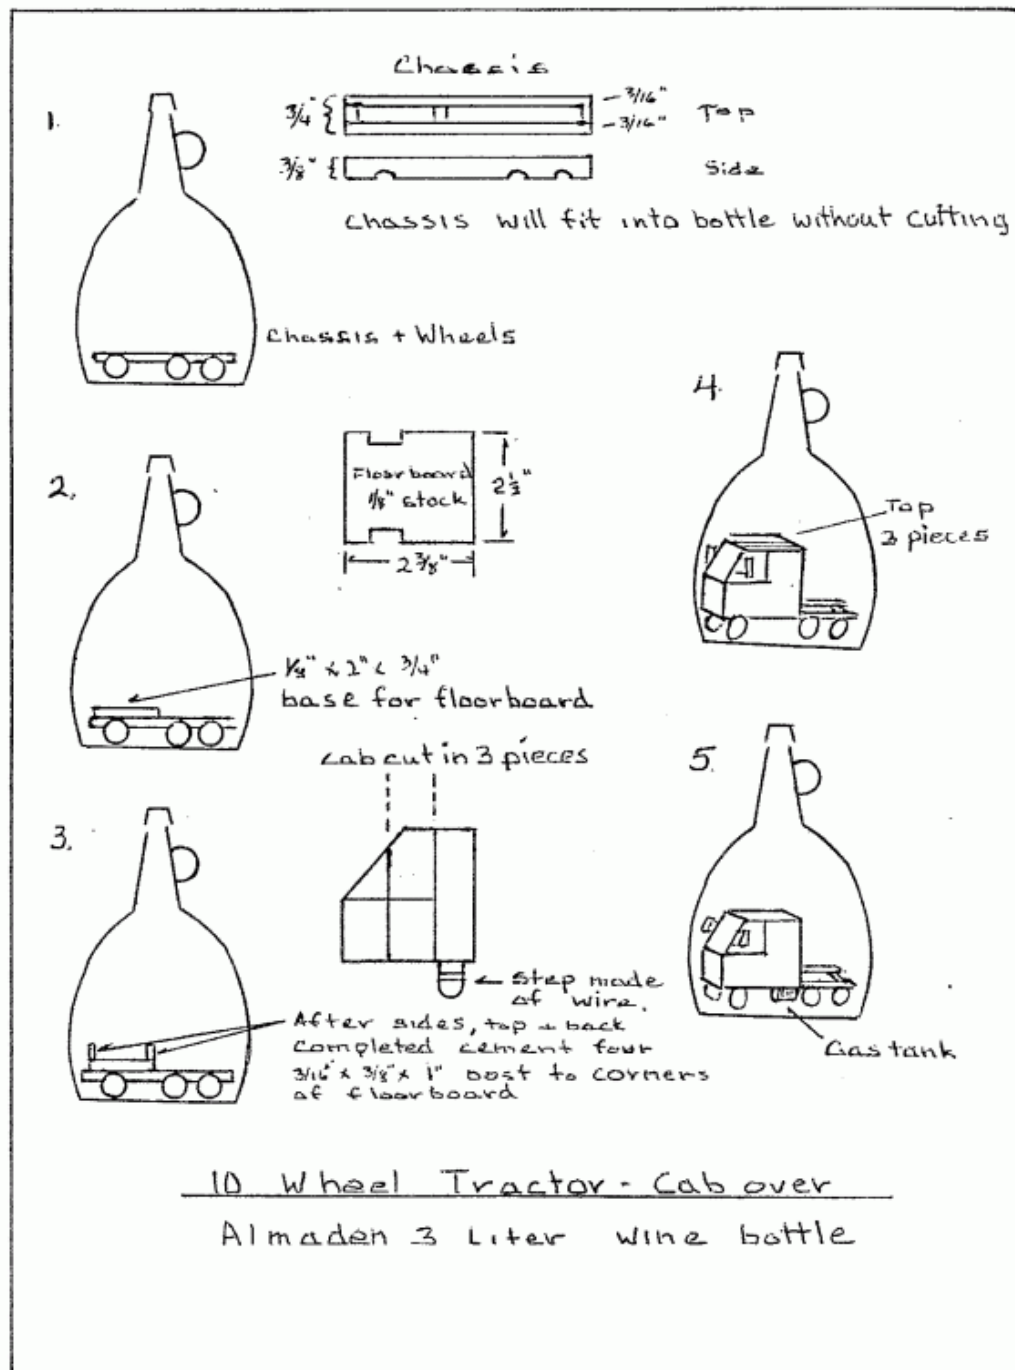 Chassis
1.
3/4"
3/16"
3/16"
Top
3/8"
Side
Chassis will fit into bottle without cutting
Chassis + Wheels
2.
Floorboard
1/8" stock
2 3/8"
base for floorboard
4.
Top
3 pieces
3.
cab cut in 3 pieces
Step made
of wire.
After sides, top + back
completed cement four
3/16" x 3/8" x 1" post to corners
of floorboard
5.
Gas tank
10 Wheel Tractor - Cab over
Almaden 3 Liter wine bottle